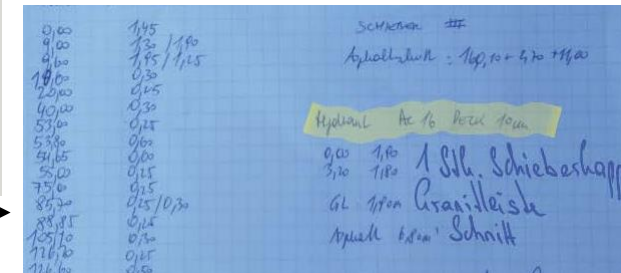 0,00 1,45
9,00 1,30 / 1,90
9,60 1,95 / 1,25
0,30
20,00 0,45
40,00 0,30
53,00 0,25
53,80 0,60
54,65 0,00
55,00 0,25
75,60 0,25
85,70 0,25/0,30
88,85 0,25
105,70 0,30
126,20 0,25
126,60 0,50
SCHIEBER III
Asphaltschnitt : 160,10 + 2,70 + 11,00
Hydrant AC 16 DECK 10cm
0,00 1,80 1 Stk. Schieberkapp
3,20 1,80
GL 1,80m Granitleiste
Asphalt 6,80m Schnitt